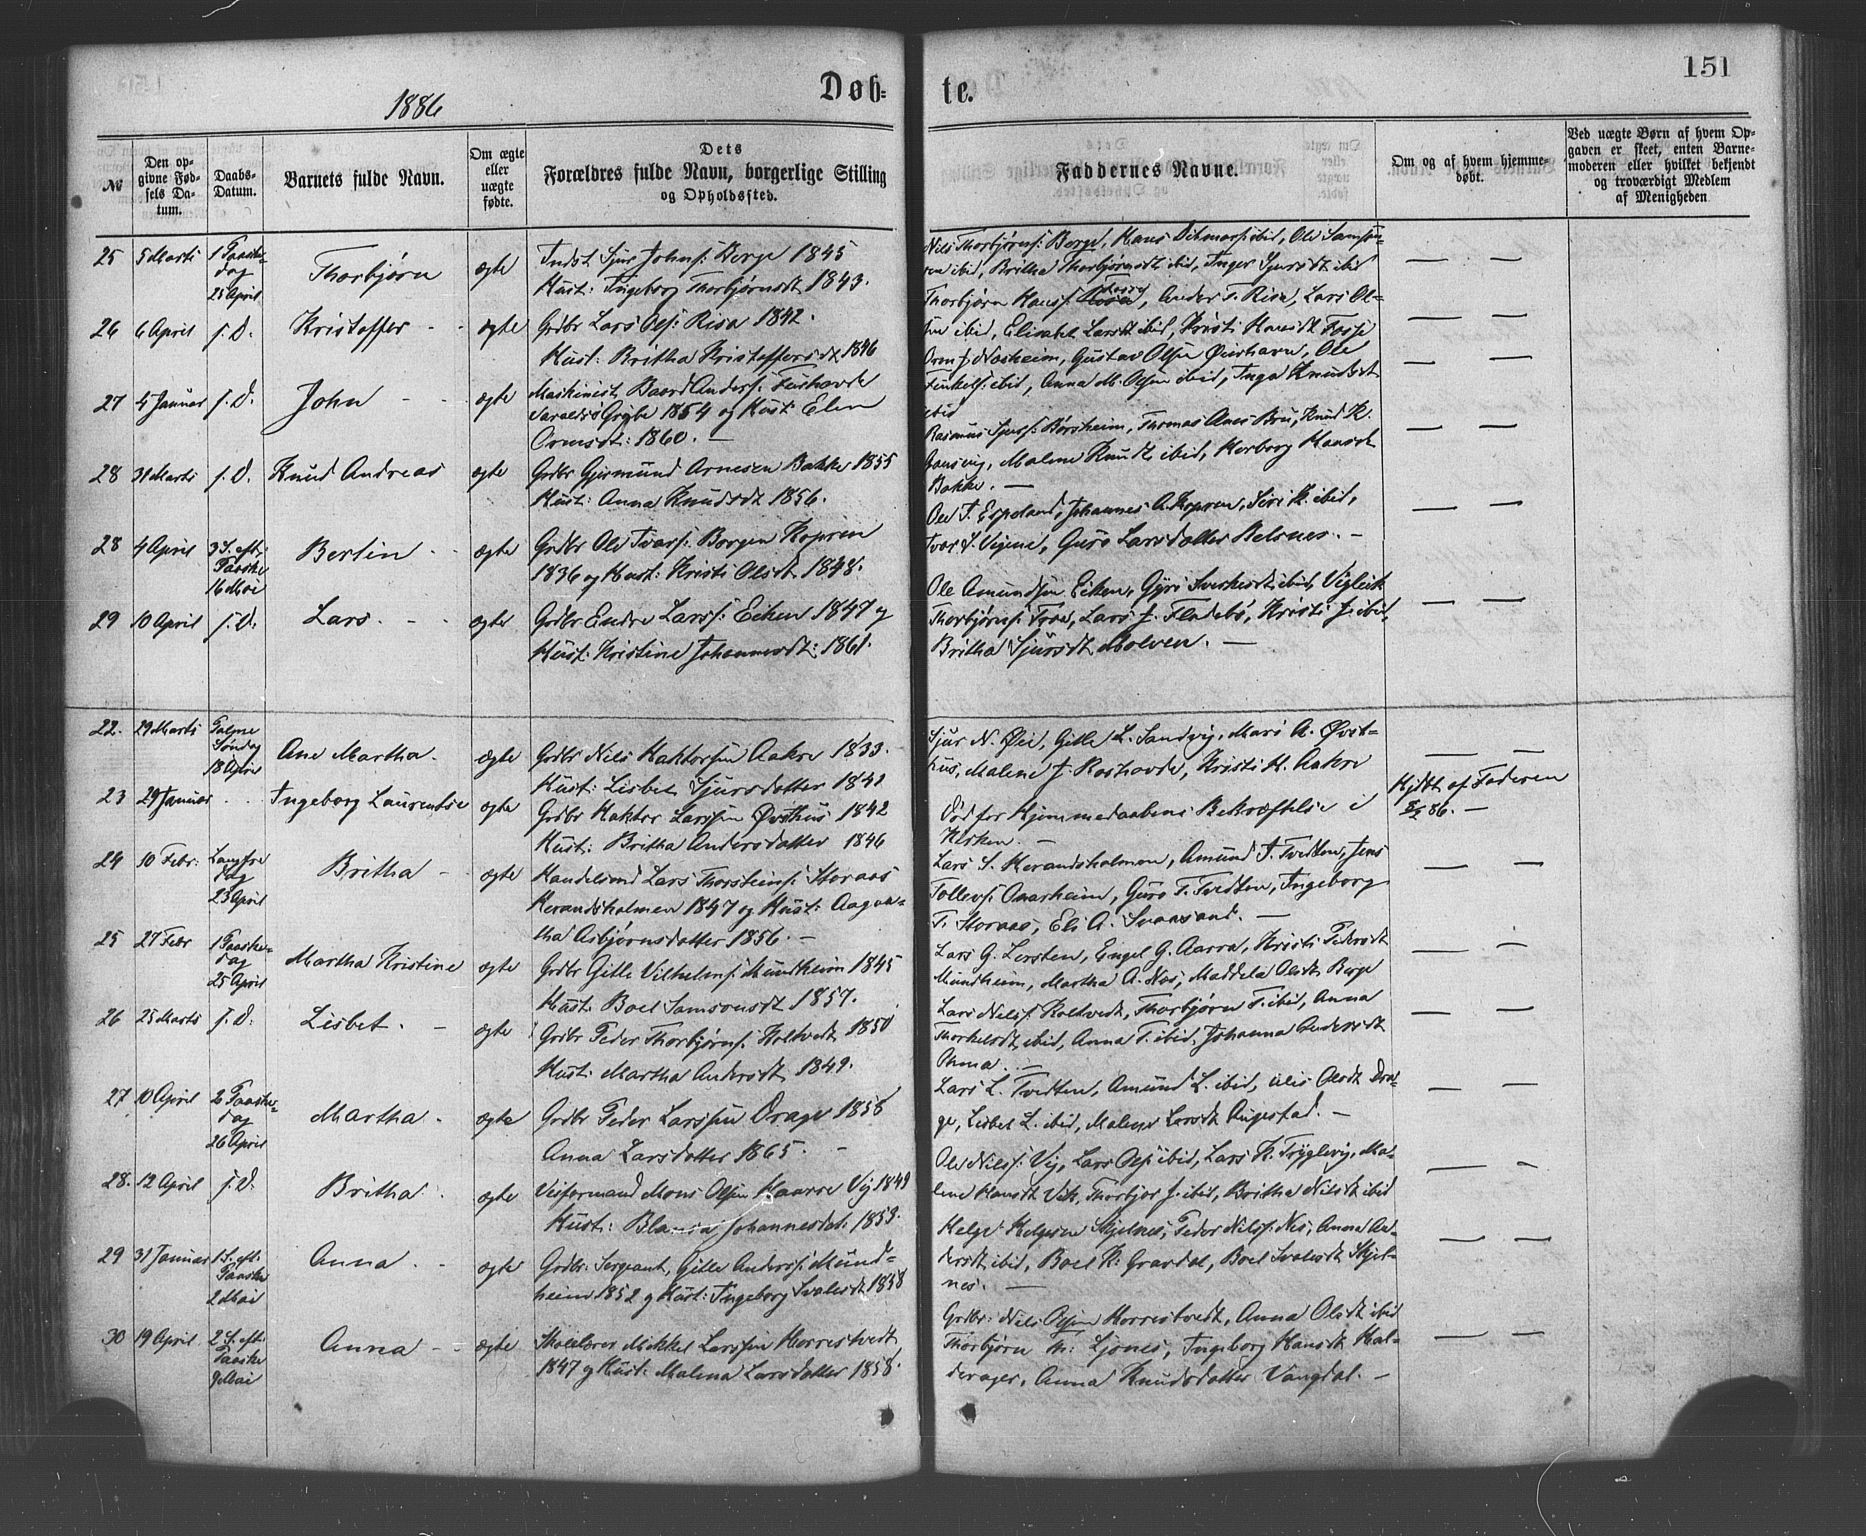 151
1886
Døb-
te.
№
Den op-
givne Fød-
sels Da-
tum.
Daabs-
Datum.
Barnets fulde Navn.
Om ægte
eller
uægte
fødte.
Dets
Forældres fulde Navn, borgerlige Stilling
og Opholdssted.
Faddernes Navne.
Om og af hvem hjemme-
døbt.
Ved uægte Børn af hvem Op-
gaven er skeet, enten Barne-
moderen eller hvilket bekjendt
og troværdigt Medlem
af Menigheden
25 5 Marts 1 Paaske-
dag
25 April
Thorbjørn
ægte
Indst Sjur Johns: Berge 1845
Hust: Ingeborg Thorbjørnsdt 1843.
Nils Thorbjørns: Berge, Hans Ditmars: ibid, Ole Samson-
sen ibid, Britha Thorbjørnsdt ibid, Inger Sjursdt ibid
26 6 April s. D.
Kristoffer
ægte
Grdbr Lars Ols: Risa 1842.
Hust: Britha Kristoffersdt 1846
Thorbjørn Hans: Fosse, Anders T. Risa, Lars Ol-
sen ibid, Elisabet Larsdt ibid, Kristi Hansdt Fosse
27 4 Januar s. D.
John
ægte
Maskinist, Baard Anders: Fushovde
Varaldsø Grube 1854 og Hust: Elen
Ormsdt: 1860. —
Orm J. Nesheim, Gustav Olsen Øierhavn, Ole
ibid, Anna M. Olsen ibid, Inga Knudsdt
ibid
28 31 Marts s. D.
Knud Andreas
ægte
Grdbr Gjermund Arnesen Bakke 1855
Hust: Anna Knudsdt 1856.
Rasmus Sjurs: Børsheim, Thomas Aves Bru, Knud K.
Malene Knudt ibid, Herborg Hansdt
Bakke. —
28 4 April 3 S. eft.
Paaske
16 Mai
Bertin
ægte
Grdbr Ole Ivars: Borgen Kopren
1836 og Hust: Kristi Olsdt 1848.
Ole T. Espeland, Johannes A. Kopren, Siri K. ibid,
Ivar S. Vigene, Guro Larsdatter Relsnes. —
29 10 April s. D.
Lars
ægte
Grdbr Endre Larss: Eiken 1847 og
Hust: Kristine Johannesdt: 1861.
Ole Amundsen Eiken, Gyri Sverkesdt ibid, Vigleik
Thorbjørns: Træ, Lars J. Flodebø, Kristi J. ibid,
Britha Sjursdt Molven. —
22. 29 Marts Palme
Søndag
18 April
Ane Martha.
ægte
Grdbr Nils Haktorsen Aakre 1833.
Hust: Lisbet Sjursdatter 1841
Sjur N. Øie, Gitle L. Sandvig, Mari A. Øvst-
hus, Malene J. Roshovde, Kristi H. Aakre
23 29 Januar
Ingeborg Laurentse
ægte
Grdbr Haktor Larssen Øvsthus 1842
Hust: Britha Andersdatter 1846
Død før Hjemmedaabens Bekræftelse i
Kirken. —
Hjdbt af Faderen
86. —
24 10 Febr: Langfre
dag
23 April
Britha
ægte
Handelsmd Lars Thorsteins: Storaas
Herandsholmen 1847 og Hust: Aagoa-
tha Asbjørnsdatter 1856. —
Lars S. Herandsholmen, Amund T. Tvedten, Jens
Tollevs: Omarheim, Guro T. Tvedten, Ingeborg
T. Storaas, Eli A. Svaasand. —
25 27 Febr 1 Paaske-
dag
25 April
Martha Kristine
ægte
Grdbr Gitle Vilhelms: Mundheim 1845
Hust: Boel Samsonsdt 1857.
Lars G. Lersten, Engel G. Aarra, Kristi Pedersdt
Mundheim, Martha A. Nes, Maddela Olsdt Berge
26 25 Marts s. D.
Lisbet.
ægte
Grdbr Peder Thorbjørns: Holtvedt 1850
Hust: Martha Andersdt 1849.
Lars Nils: Holtvedt, Thorbjørn T. ibid, Anna
Thorkelsdt ibid, Anna T. ibid, Johanna Andersdt
Omma. —
27 10 April 2 Paaske-
dag
26 April
Martha.
ægte
Grdbr Peder Larssen Drage 1855
Anna Larsdatter 1865. —
Lars L. Tvedten, Amund L. ibid, Olsdt Dra-
ge, Lisbet L. ibid, Malene Larsdt Augestad. —
28. 12 April s. D.
Britha.
ægte
Veiformand Mons Olsen Haarre Vig 1849
Hust: Johannesdt: 1853.
Ole Nils: Vig, Lars Ols: ibid, Lars H. Tryglevig, Ma-
lene Hansdt Vik, Thorbjør J. ibid, Britha Nilsdt ibid
29 31 Januar 1 S. eft.
Paaske
2 Mai
Anna
ægte
Grdbr: Sergeant, Gitle Anders: Mund-
heim 1852 og Hust: Ingeborg Svalesdt 1858
Helge Helgesen Skjelnes, Peder Nils: Nes, Anna An-
dersdt ibid, Boel K: Gravdal, Boel Svalesdt Skjel-
nes. —
30 19 April 2 S. eft.
Paaske
9 Mai
Anna
ægte
Skolelærer Mikkel Larssen Horrestvedt
1847 og Hust: Malena Larsdatter 1858.
Grdbr: Nils Olsen Horrestvedt, Anna Olsdt ibid
Thorbjørn Th: Ljones, Ingeborg Hansdt Hal-
derager, Anna Knudsdatter Vangdal. —